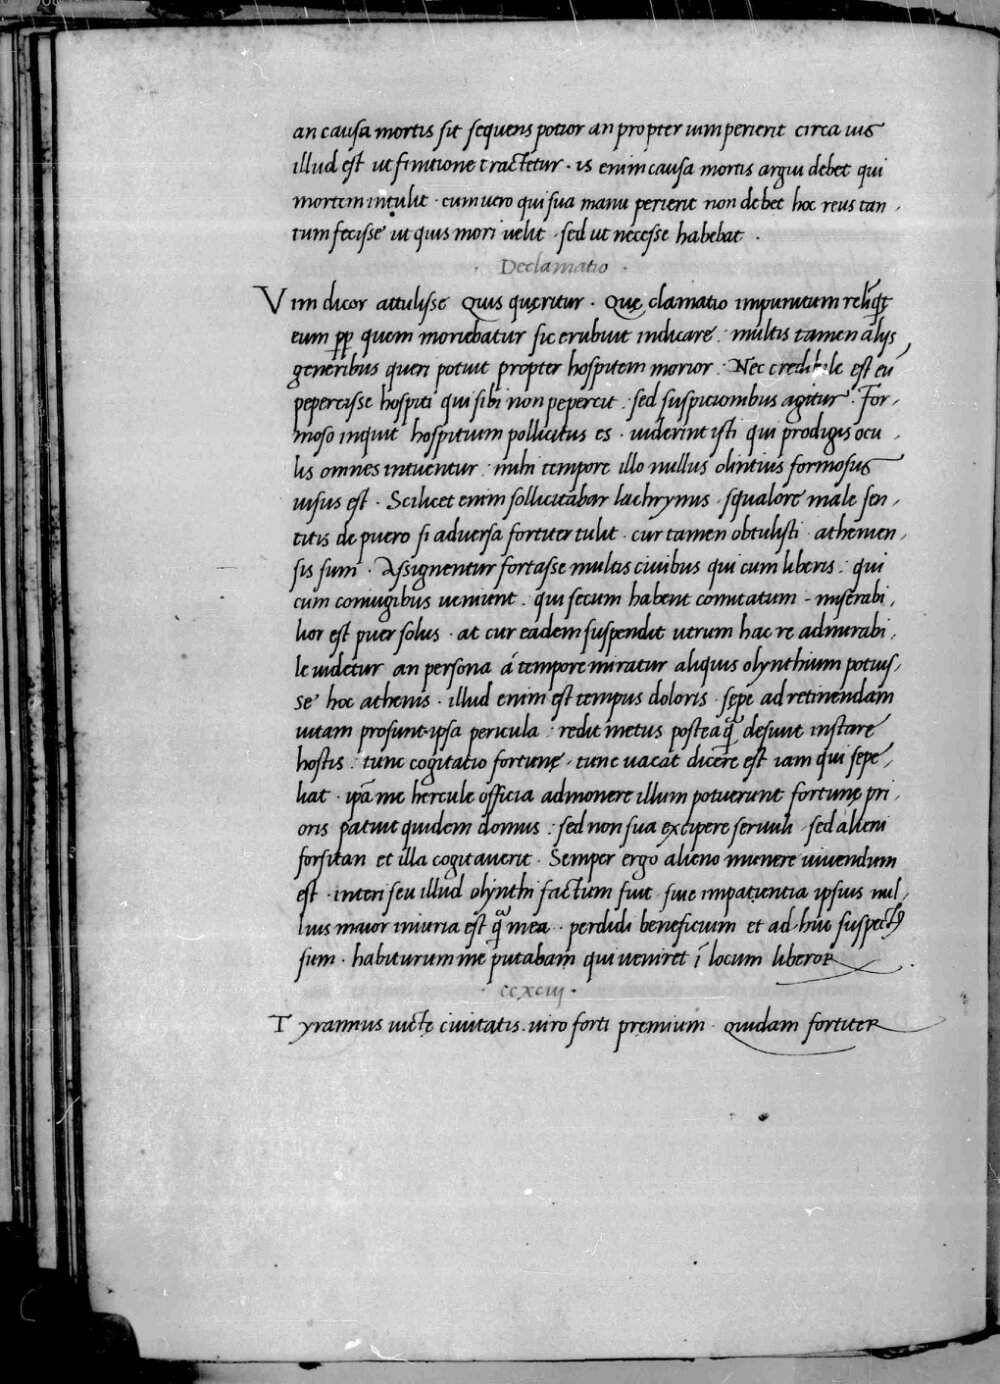 an causa mortis sit sequens potior an propter uim perierit circa uis
illud est ut finitione tractetur · is enim causa mortis argui debet qui
mortem intulit · cum uero qui sua manu perierit non debet hoc reus tan
tum fecisse ut quis mori uelit · sed ut necesse habebat ·
· Declamatio ·
Vim dicor attulisse Quis queritur · Quę clamatio impunitum reliqͥt
eum ꝓp quem moriebatur sic erubuit indicare : multis tamen alijs
generibus queri potuit propter hospitem morior : Nec credibile est eū
pepercisse hospiti qui sibi non pepercit : sed suspicionibus agitur · For
moso inquit hospitium pollicitus es · uiderint isti qui prodigis ocu
lis omnes intuentur : mihi tempore illo nullus olintius formosus
uisus est · Scilicet enim sollicitabar lachrymis · squalore male sen
titis de puero si aduersa fortiter tulit · cur tamen obtulisti · athenien
sis sum · Assignentur fortasse multis ciuibus qui cum liberis : qui
cum coniugibus ueniunt : qui secum habent comitatum - miserabi
lior est puer solus · at cur eadem suspendit utrum hac re admirabi
le uidetur an persona á tempore miratur aliquis olynthium potuis
se hoc athenis · illud enim est tempus doloris · sępe ad retinendam
uitam prosunt · ipsa pericula : redit metus posteaq̃ desiuit instare
hostis : tunc cogitatio fortunę · tunc uacat dicere est iam qui sepe
liat · ip̄a me hercule officia admonere illum potuerunt fortunę pri
oris patuit quidem domus : sed non sua excipere seruuli · sed alieni
forsitan et illa cogitauerit · Semper ergo alieno munere uiuendum
est · interi seu illud olynthi factum fuit siue impatientia ipsius nul
lius maior iniuria est q̃ mea · perdidi beneficium et ad huc suspectꝰ
sum · habiturum me putabam qui ueniret ī locum liberor
· ccxciij ·
Tyrannus uictę ciuitatis · uiro forti premium · Quidam fortiter